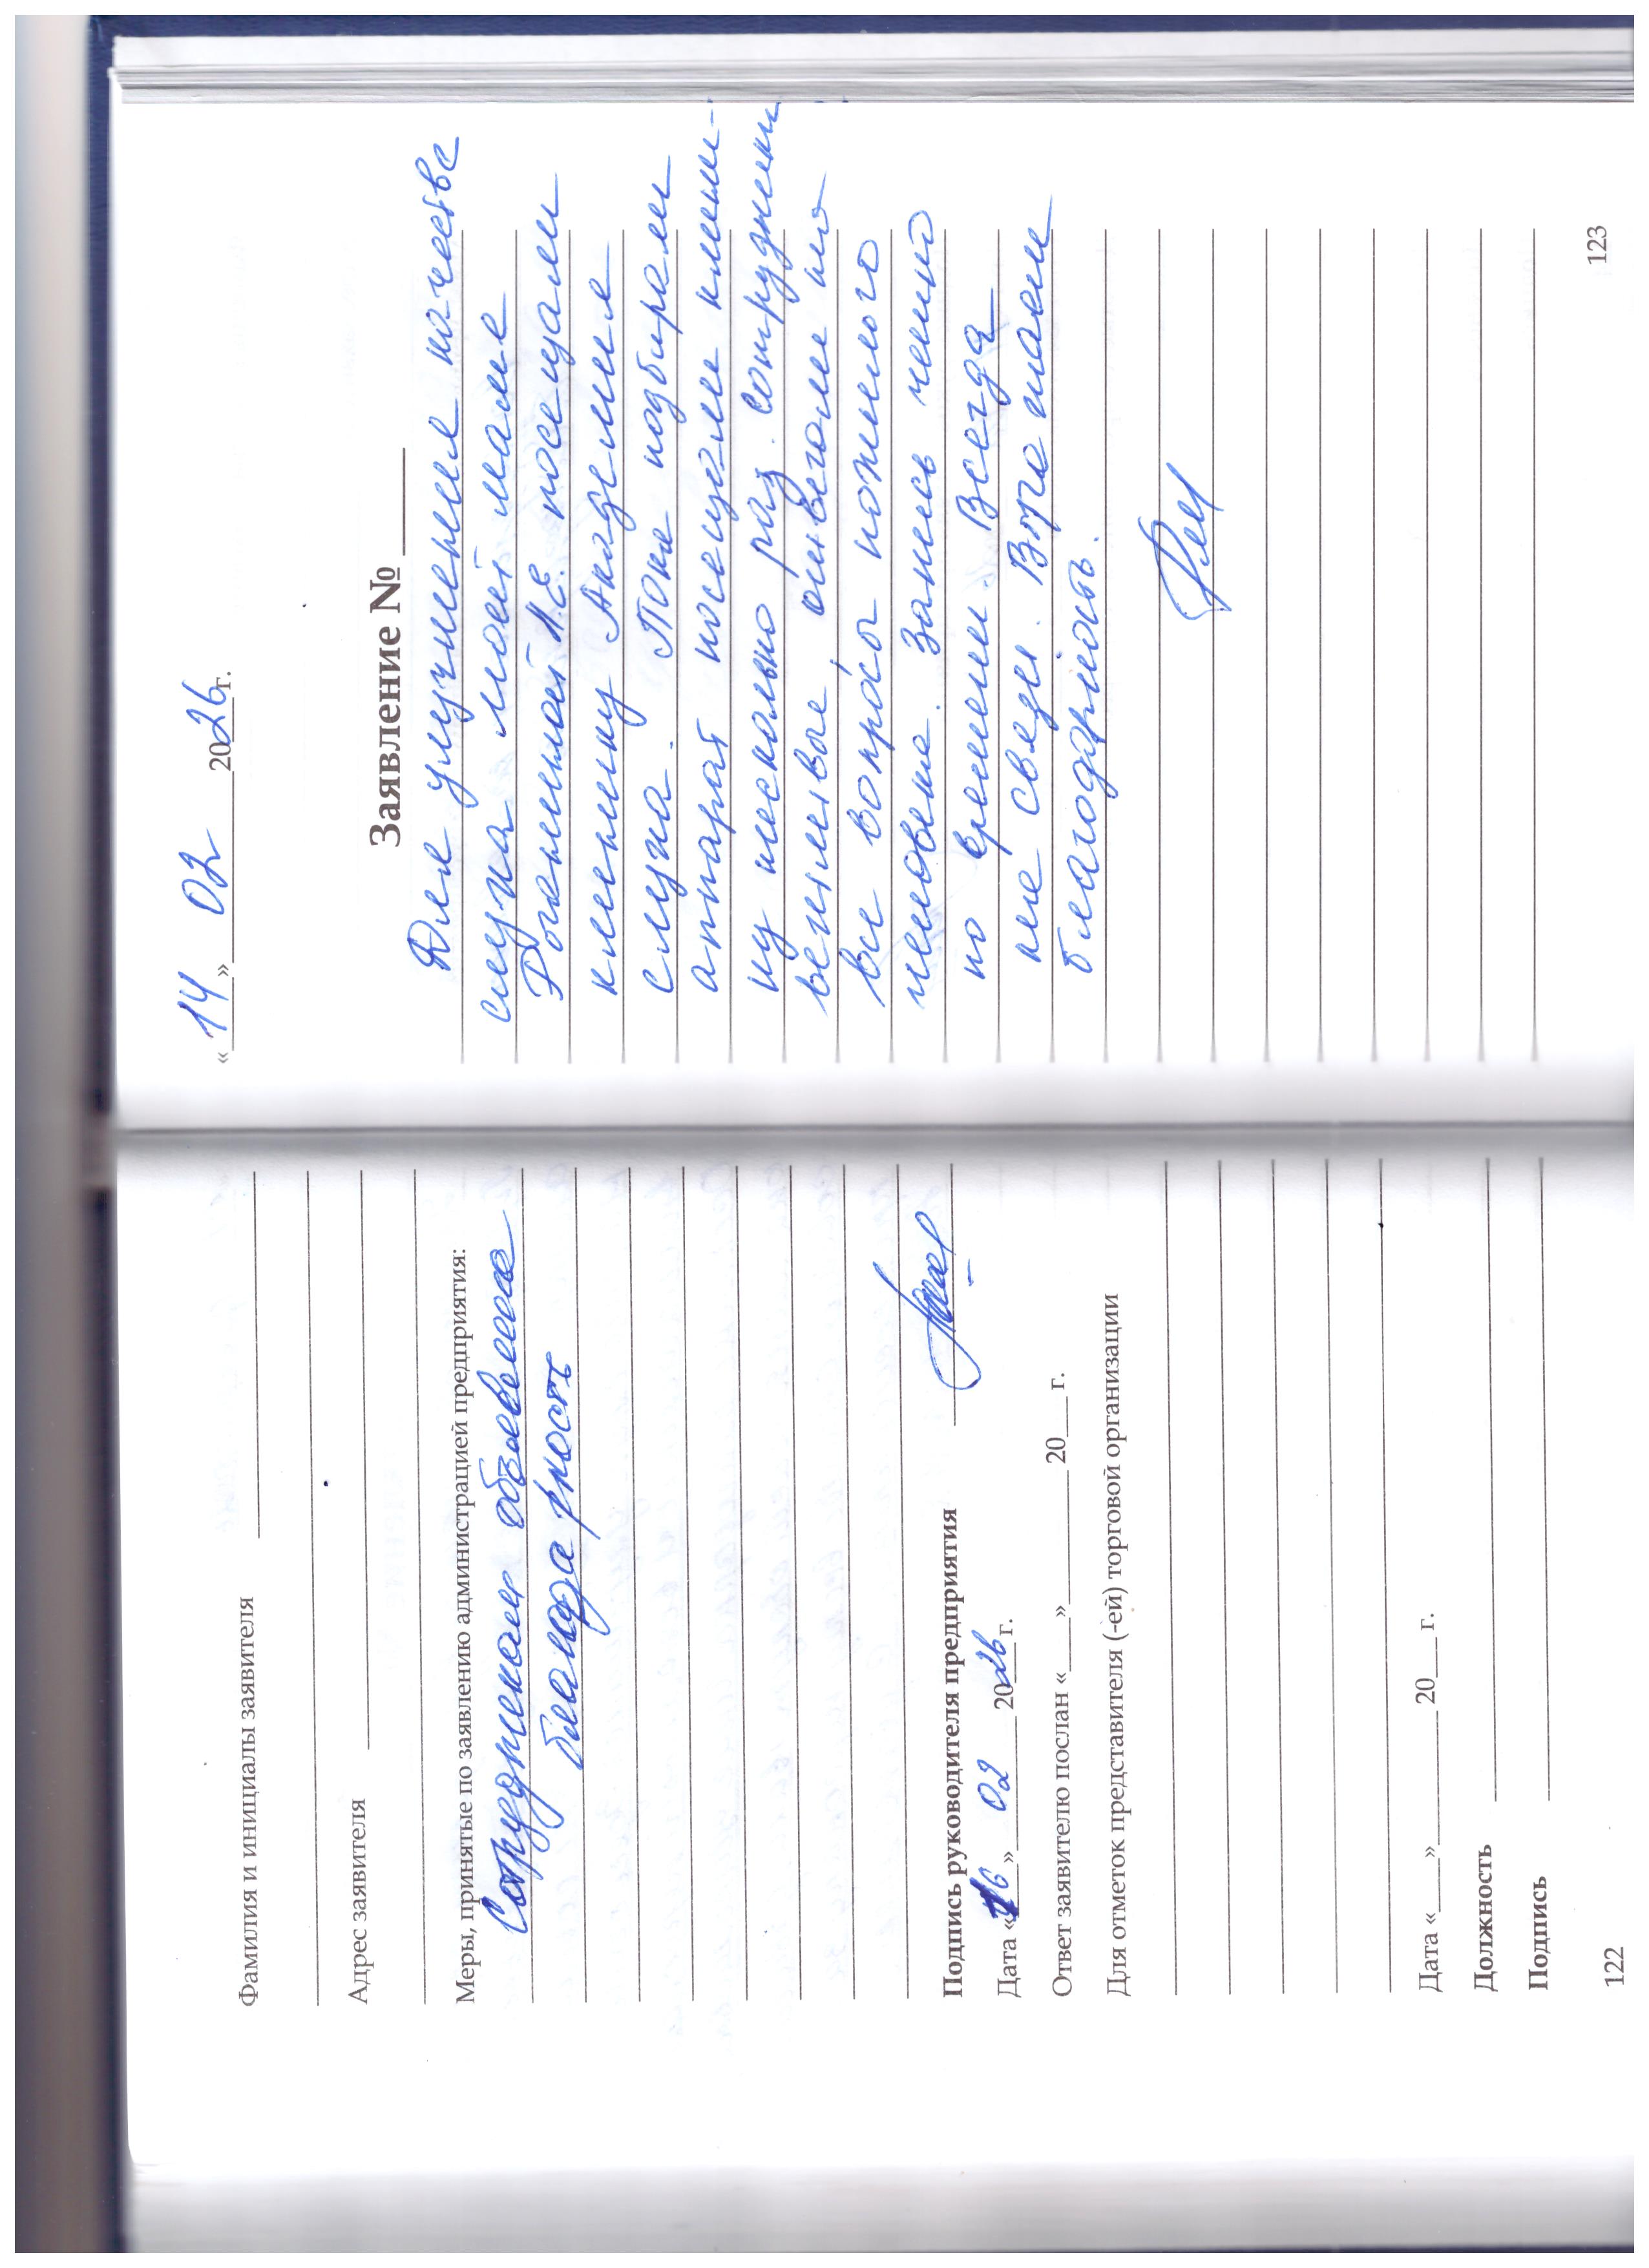 Фамилия и инициалы заявителя
Адрес заявителя
Меры, принятые по заявлению администрацией предприятия:
Сотрудникам объявлена
благодарность
Подпись руководителя предприятия
Дата «16» 02 2026 г.
Ответ заявителю послан «___»________20___г.
Для отметок представителя (-ей) торговой организации
Дата «___»________20___г.
Должность
Подпись
122
«14» 02 2026 г.
Заявление №
Для улучшения качества
слуха моей маме
Рогонимой А.С. посещали
клинику Академия
слуха. Пока подбирали
аппарат посещали клини-
ку несколько раз. Сотрудники
вежливые, ответили на
все вопросы пожилого
человека. Запись четко
по времени. Всегда
на связи. Выражаем
благодарность.
123